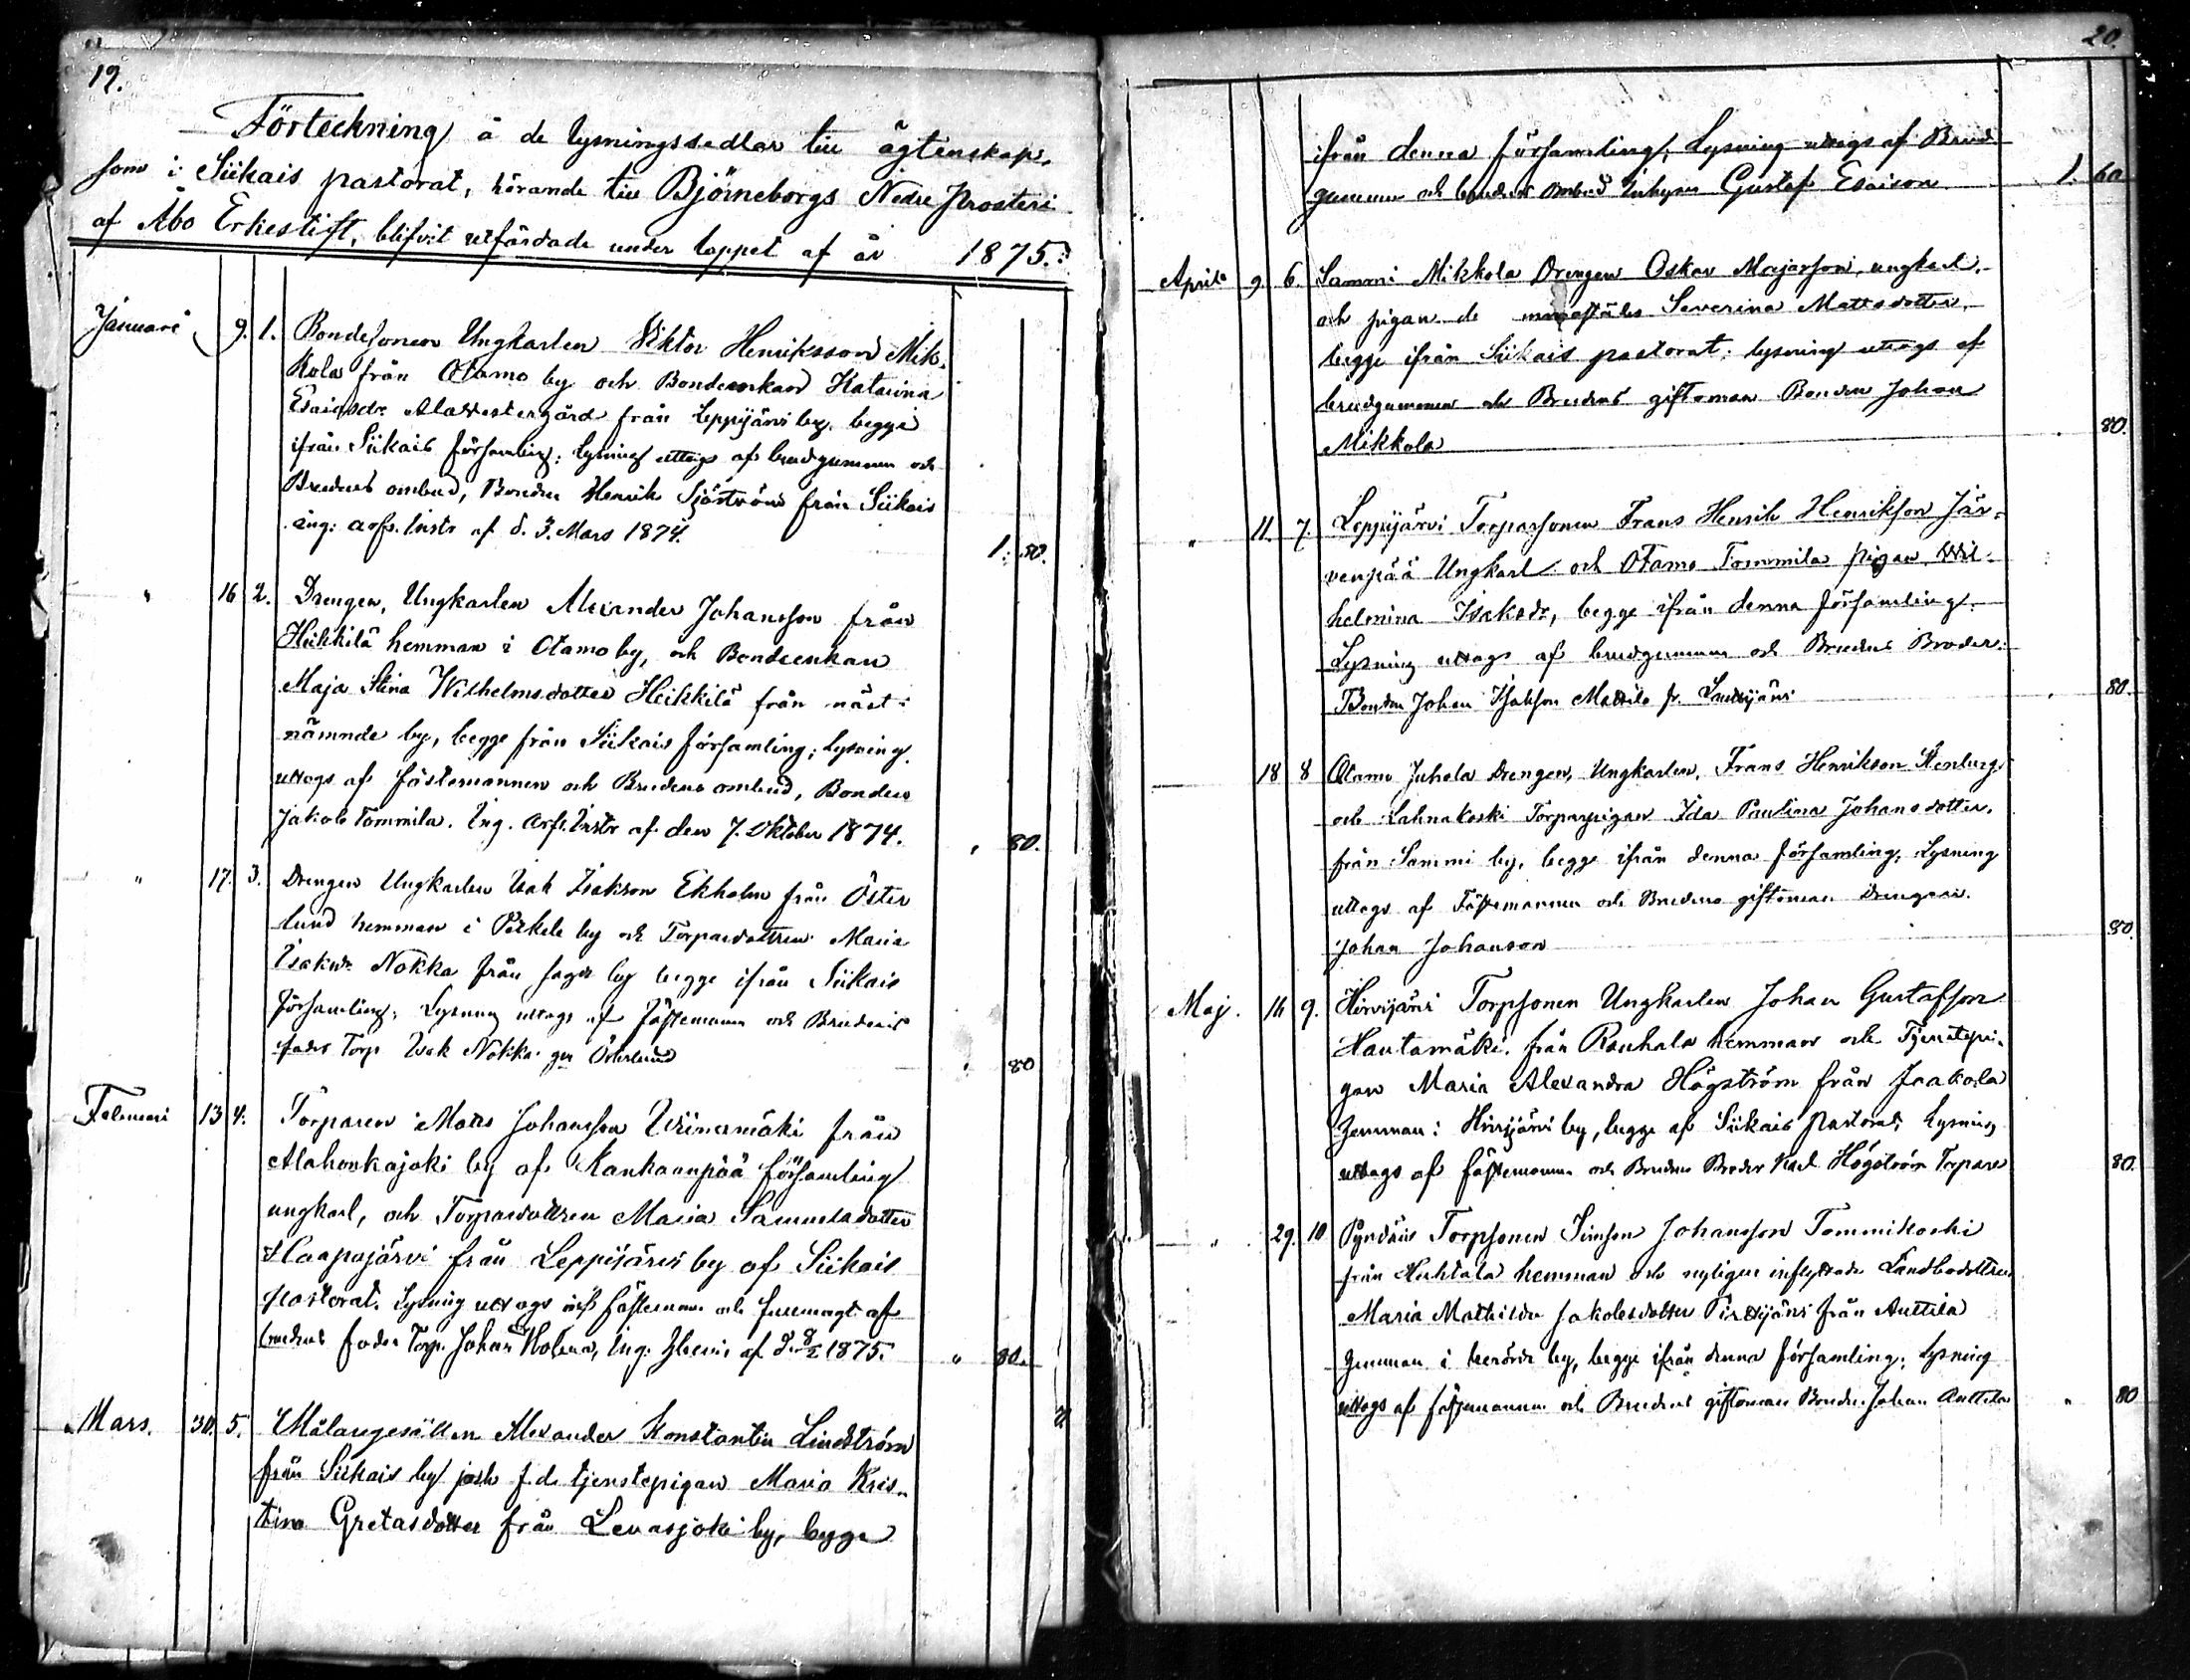 19.
Förteckning å de lysningssedlar till ägtenskap,
som i Siikais pastorat, hörande till Björneborgs Nedre Prosteri
af Åbo Erkestift, blifvit utfärdade under loppet af år 1875.
Januari 9. 1. Bondesonen Ungkarlen Viktor Henriksson Mik-
kola från Otamo by och Bondeenkan Katarina
Esaiasdr Alavestergård från Leppijärvi by, begge
ifrån Siikais församling; lysning uttogs af brudgummen och
Brudens ombud, Bonden Henrik Sjöström från Siikais
ing: arfs. instr af d. 3. Mars 1874. 1: 80.
" 16 2. Drengen, Ungkarlen Alexander Johansson från
Heikkilä hemman i Otamo by, och Bondeenkan
Maja Stina Wilhelmsdotter Heikkilä från näst-
nämnde by, begge från Siikais församling; lysning
uttogs af fästemannen och Brudens ombud, Bonden
Jakob Tommila. Ing. arfs. instr af den 7. Oktober 1874. " 80.
" 17. 3. Drengen Ungkarlen Isak Isakson Ekholm från Öster
lund hemman i Pirkele by och Torparedottren Maria
Isaksdr Nokka från samma by begge ifrån Siikais
församling; Lysning uttogs af fästemannen och Brudens
fader Torp Isak Nokka gm Österlund " 80
Februari 13 4. Torparen Matts Johansson Viinamäki från
Alahonkajoki by af Kankaanpää församling
ungkarl, och Torparedottren Maria Samuelsdotter
Haapajärvi från Leppijärvi by af Siikais
pastorat. Lysning uttogs af fästeman och fullmagt af
brudens fader Torp. Johan Holma, Ing. af d. 8/2 1875. " 80.
Mars. 30. 5. Målaregesällen Alexander Konstantin Lindström
från Siikais by och f.d. tjenstepigan Maria Kris-
tina Gretasdotter från Leväsjoki by, begge
20.
ifrån denna församling; Lysning uttogs af Brud-
gummen och brudens ombud Inhysn Gustaf Esaison 1. 60
April 9. 6. Sammi Mikkola Drengen Oskar Majasson, ungkarl,
och pigan de Severina Mattsdotter,
begge ifrån Siikais pastorat; lysning uttogs af
brudgummen och Brudens giftoman Bonden Johan
Mikkola " 80.
" 11. 7. Leppijärvi Torparsonen Frans Henrik Henrikson Jär-
venpää Ungkarl och Otamo Tommila pigan Wil-
helmina Isaksdr, begge ifrån denna församling.
Lysning uttogs af brudgummen och Brudens Broder:
Bonden Johan Isakson Mattila fr. Lauttijärvi " 80.
18 8 Otamo Juhola Drengen, Ungkarlen, Frans Henrikson Stenberg
och Lahnakoski Torparpigan Ida Paulina Johansdotter,
från Sammi by, begge ifrån denna församling, Lysning
uttogs af Fästemannen och Brudens giftoman Drengen
Johan Johanson 80.
Maj. 16 9. Hirvijärvi Torpsonen Ungkarlen Johan Gustafsson
Hautamäki, från Rauhala hemman och Tjenstepi-
gan Maria Alexandra Högström från Jaakola
hemman i Hirvijärvi by, begge af Siikais Pastorat; Lysning
uttogs af fästemannen och Brudens Broder Karl Högström Torpare 80.
" 29. 10 Pyndäris Torpsonen Simson Johansson Tommikoski
från Huhtala hemman och nyligen inflyttade Landbodottren
Maria Mathilda Jakobsdotter Pirttijärvi från Anttila
hemman i berörde by, begge ifrån denna församling; Lysning
uttogs af fästemannen och Brudens giftoman Bonden Johan Anttila " 80